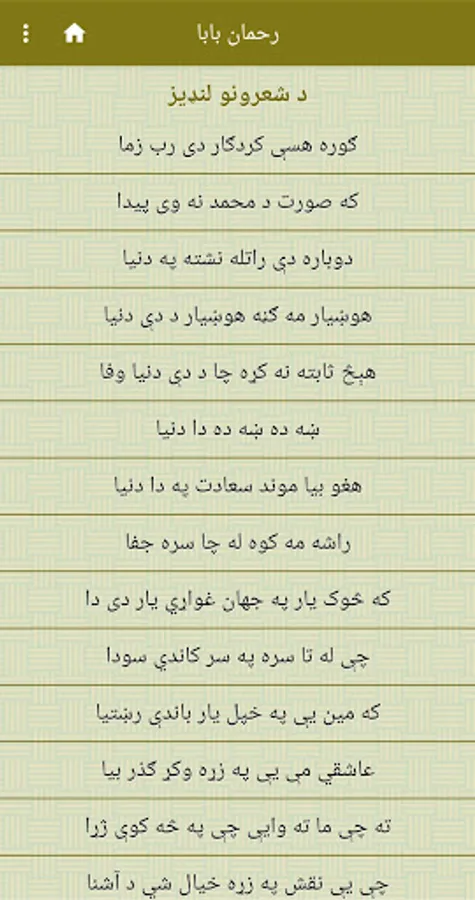 رحمان بابا
د شعرونو لنډيز
ګوره هسې کردګار دی رب زما
که صورت د محمد نه وی پيدا
دوباره دې راتله نشته په دنيا
هوښيار مه ګڼه هوښيار د دې دنيا
هېڅ ثابته نه کړه چا د دې دنيا وفا
ښه ده ښه ده دا دنيا
هغو بيا موند سعادت په دا دنيا
راشه مه کوه له چا سره جفا
که څوک يار په جهان غواړي يار دی دا
چې له تا سره په سر کاندي سودا
که مين يې په خپل يار باندې رښتيا
عاشقي مې يې په زړه وکړ ګذر بيا
ته چې ما ته وايې چې په څه کوې ژړا
چې يې نقش په زړه خيال شي د آشنا